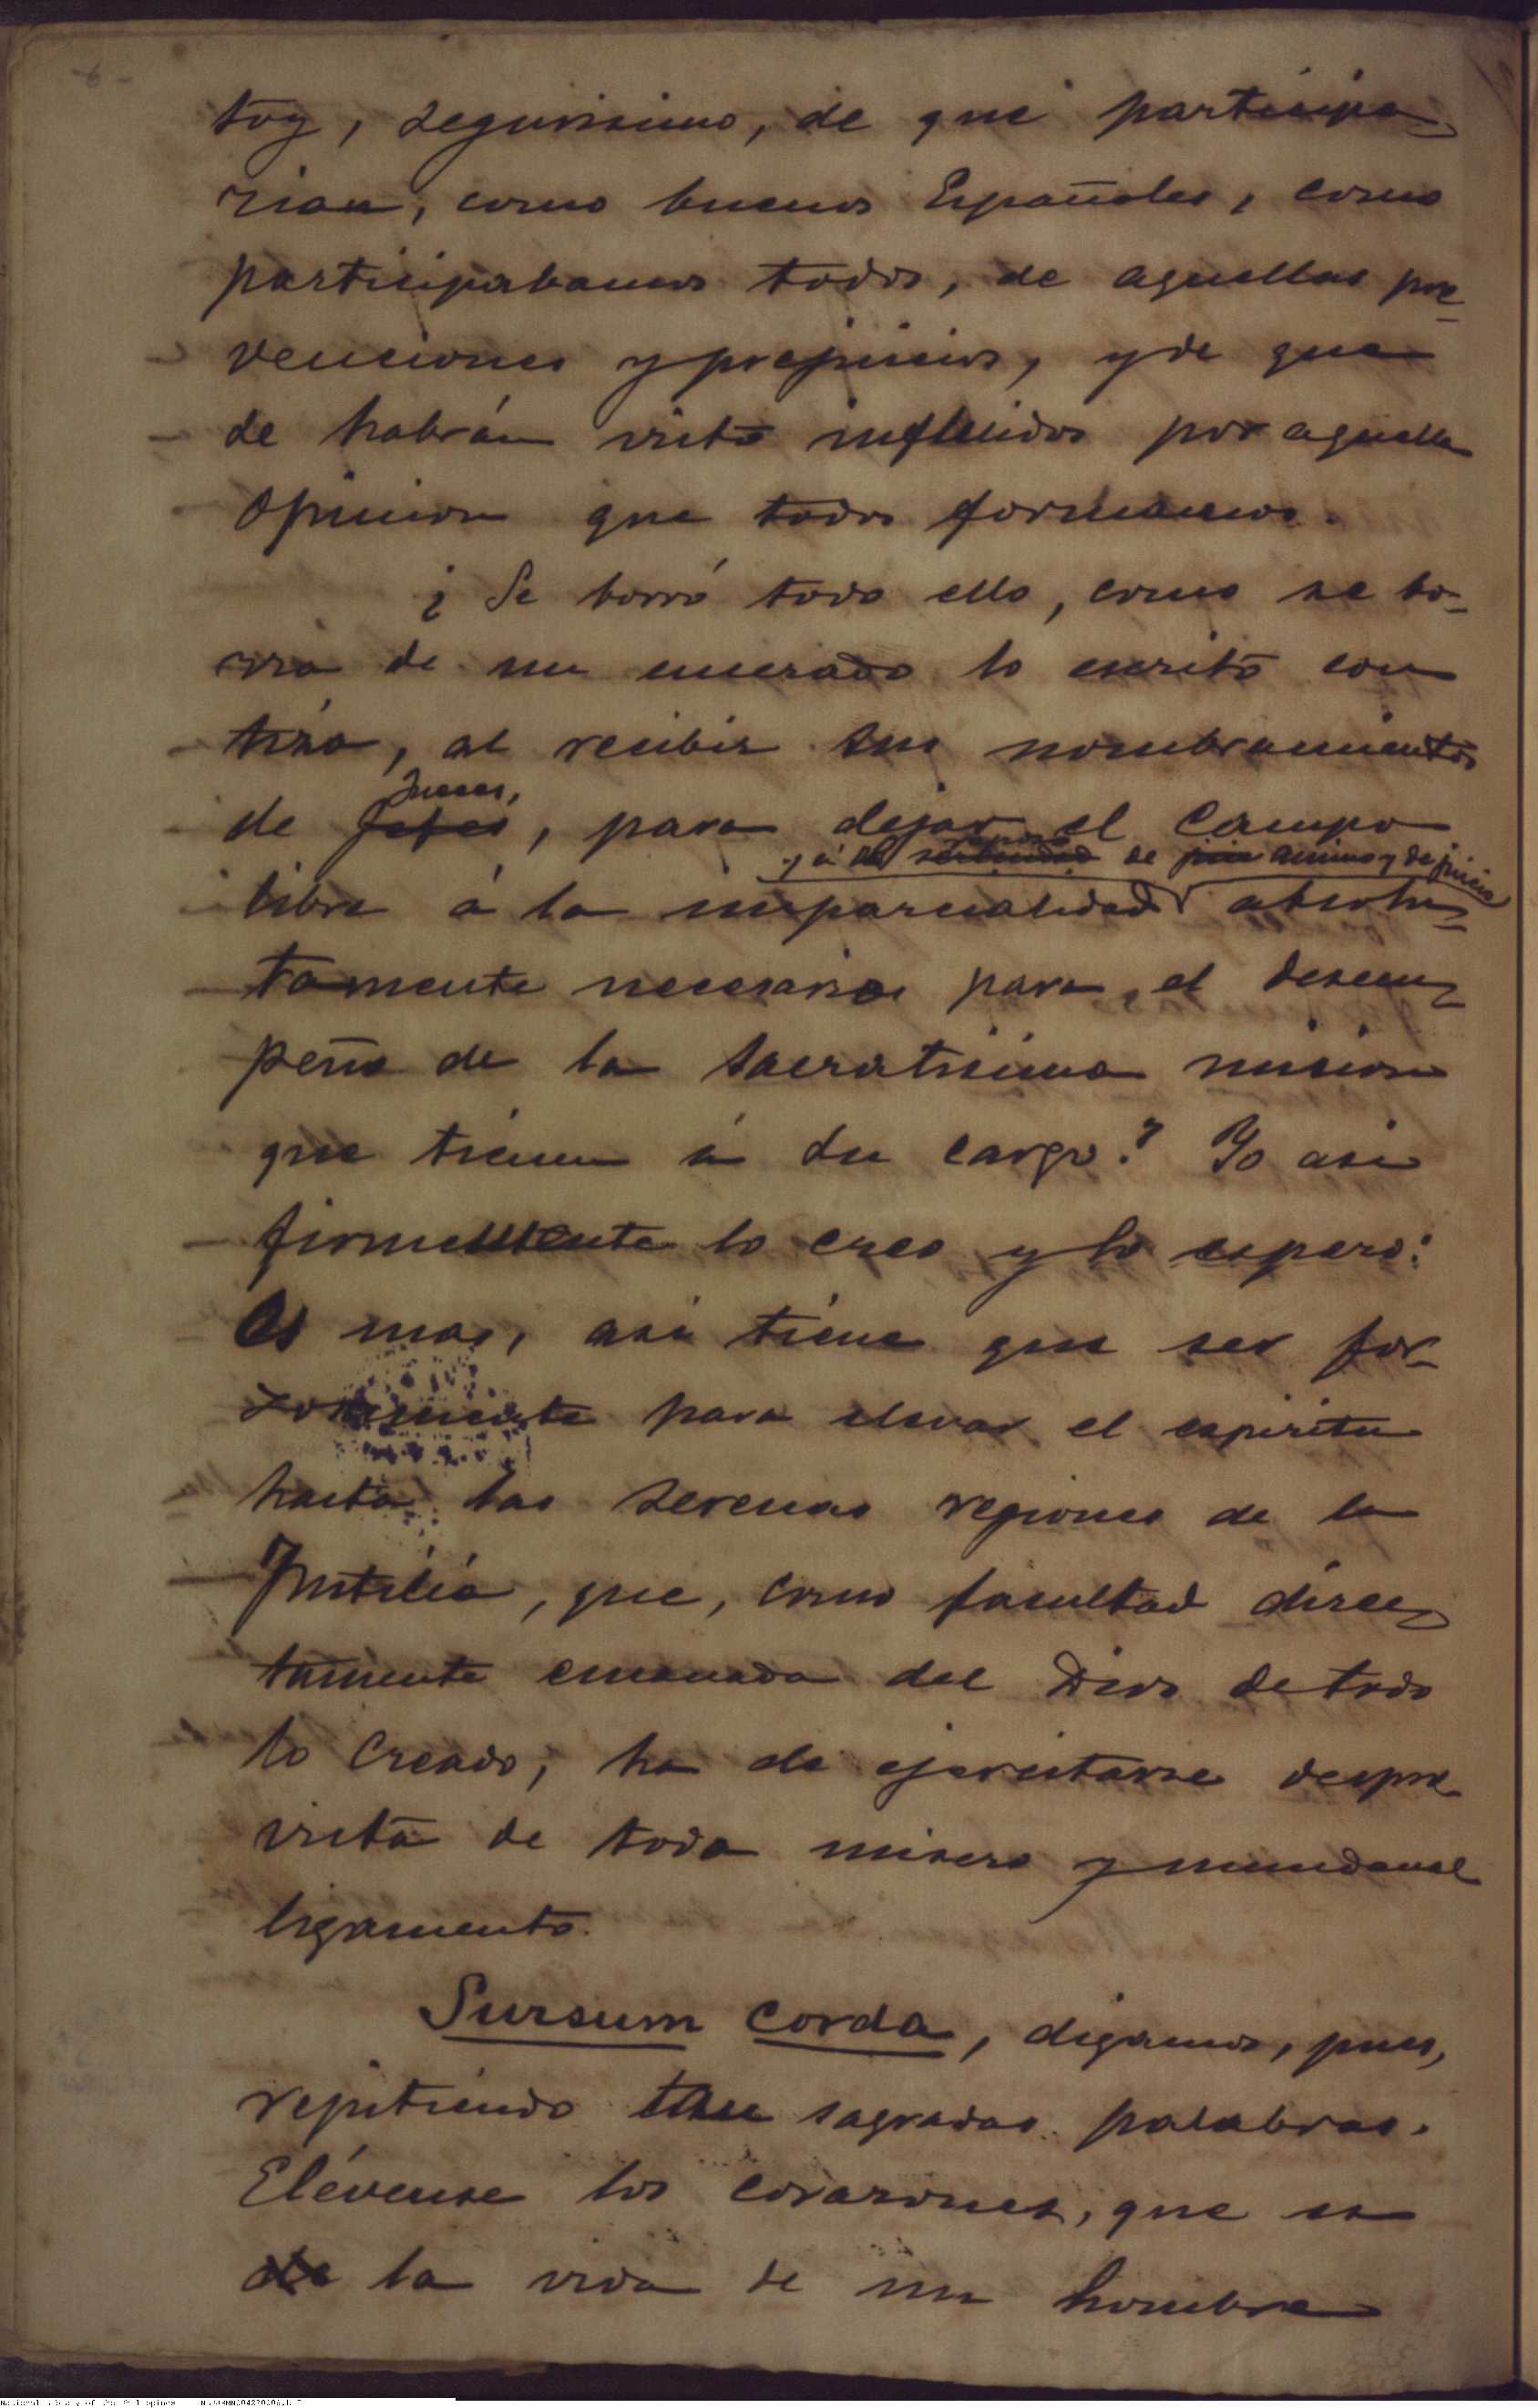 -6-
toy, segurisimo, de que participa-
rian, como buenos Españoles, como
participabamos todos, de aquellas pre-
venciones y prejuicios, y de que
se habrán visto influidos por aquella
opinion que todos formamos.
¿Se borró todo ello, como se bo-
rra de un encerado lo escrito con
tiza, al recibir sus nombramientos
Jueces,
de Jefes, para dejar el campo
y á la serenidad de juic animo y de juicio
libre á la imparcialidad absolu-
tamente necesarias para el desem-
peño de la sacratisima mision
que tienen á su cargo? Yo asi
firmemente lo creo y lo espero:
Es mas, asi tiene que ser for-
zosamente para elevar el espiritu
hasta las serenas regiones de la
Justicia, que, como facultad direc-
tamente emanada del Dios de todo
lo creado, ha de ejercitarse despro
vista de todo misero y mundanal
ligamento.
Sursum corda, digamos, pues,
repitiendo tan sagradas palabras.
Elévense los corazones, que es
de la vida de un hombre
National Library of the Philippines